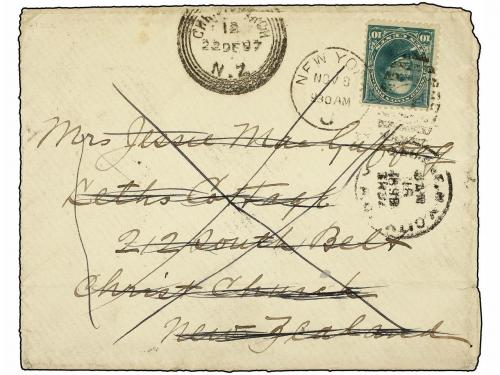 CHRISTCHURCH
12
22 DE 97
N.Z.
NEW YO
NOV 9
930AM
10 10
Mrs Jessie Mac
Leths Cottage
212 South Belt
Christ Church
New Zealand
N.Y. CITY
16
1898